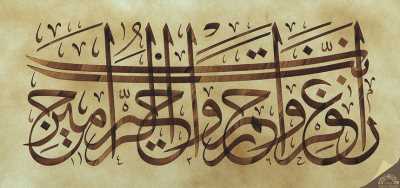 رب اغفر وارحم وأنت خير الراحمين